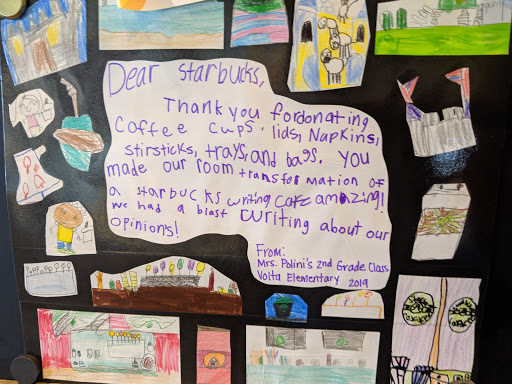 Dear Starbucks,
Thank you fordonating
Coffee Cups, lids, Napkins,
stirsticks, trays, and bags. You
made our room transformation of
a starbucks writing cafe amazing!
we had a blast writing about our
opinions!
From:
Mrs. Polini's 2nd Grade Class
Volta Elementary 2019